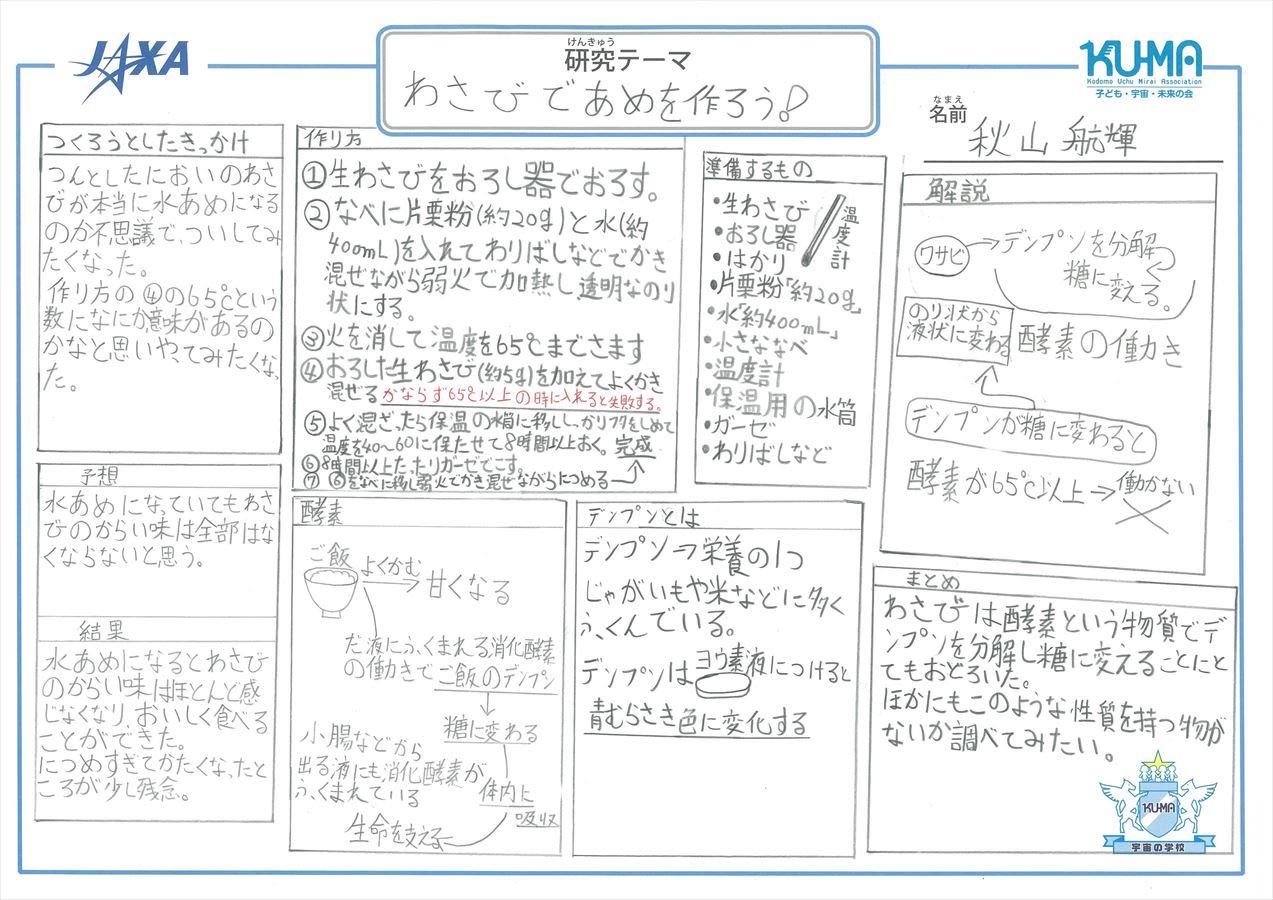 JAXA
けんきゅう
研究テーマ
わさびであめを作ろう!
KU-MA
Kodomo Uchu Mirai Association
子ども・宇宙・未来の会
なまえ
名前
秋山 航輝
つくろうとしたきっかけ
つんとしたにおいのわさ
びが本当に水あめになる
のか不思議で、ついしてみ
たくなった。
作り方の④の65℃という
数になにか意味があるの
かなと思いやってみたくなっ
た。
予想
水あめになっていてもわさ
びのからい味は全部はな
くならないと思う。
結果
水あめになるとわさび
のからい味はほとんど感
じなくなり、おいしく食べる
ことができた。
につめすぎてかたくなったと
ころが少し残念。
作り方
①生わさびをおろし器でおろす。
②なべに片栗粉(約20g)と水(約
400mL)を入れてわりばしなどでかき
混ぜながら弱火で加熱し透明なのり
状にする。
③火を消して温度を65℃までさます
④おろした生わさび(約5g)を加えてよくかき
混ぜる かならず65℃以上の時に入れると失敗する。
⑤よく混ざったら保温の水筒に移ししっかりフタをしめて
温度を40~60に保たせて8時間以上おく。完成
⑥8時間以上たったりガーゼでこす。
⑦⑥をなべに移し弱火でかき混ぜながらにつめる
準備するもの
・生わさび
・おろし器
・はかり
温度計
・片栗粉「約20g」
・水「約400mL」
・小さななべ
・温度計
・保温用の水筒
・ガーゼ
・わりばしなど
解説
ワサビ→デンプンを分解
糖に変える。
のり状から
液状に変わる
酵素の働き
デンプンが糖に変わると
酵素が65℃以上→働かない
酵素
ご飯
よくかむ
甘くなる
だ液にふくまれる消化酵素
の働きでご飯のデンプン
糖に変わる
小腸などから
出る液にも消化酵素が
ふくまれている
体内に
吸収
生命を支える
デンプンとは
デンプン⇒栄養の1つ
じゃがいもや米などに多く
ふくんでいる。
デンプンはヨウ素液につけると
青むらさき色に変化する
まとめ
わさびは酵素という物質でデ
ンプンを分解し糖に変えることにと
てもおどろいた。
ほかにもこのような性質を持つ物が
ないか調べてみたい。
KU-MA
宇宙の学校